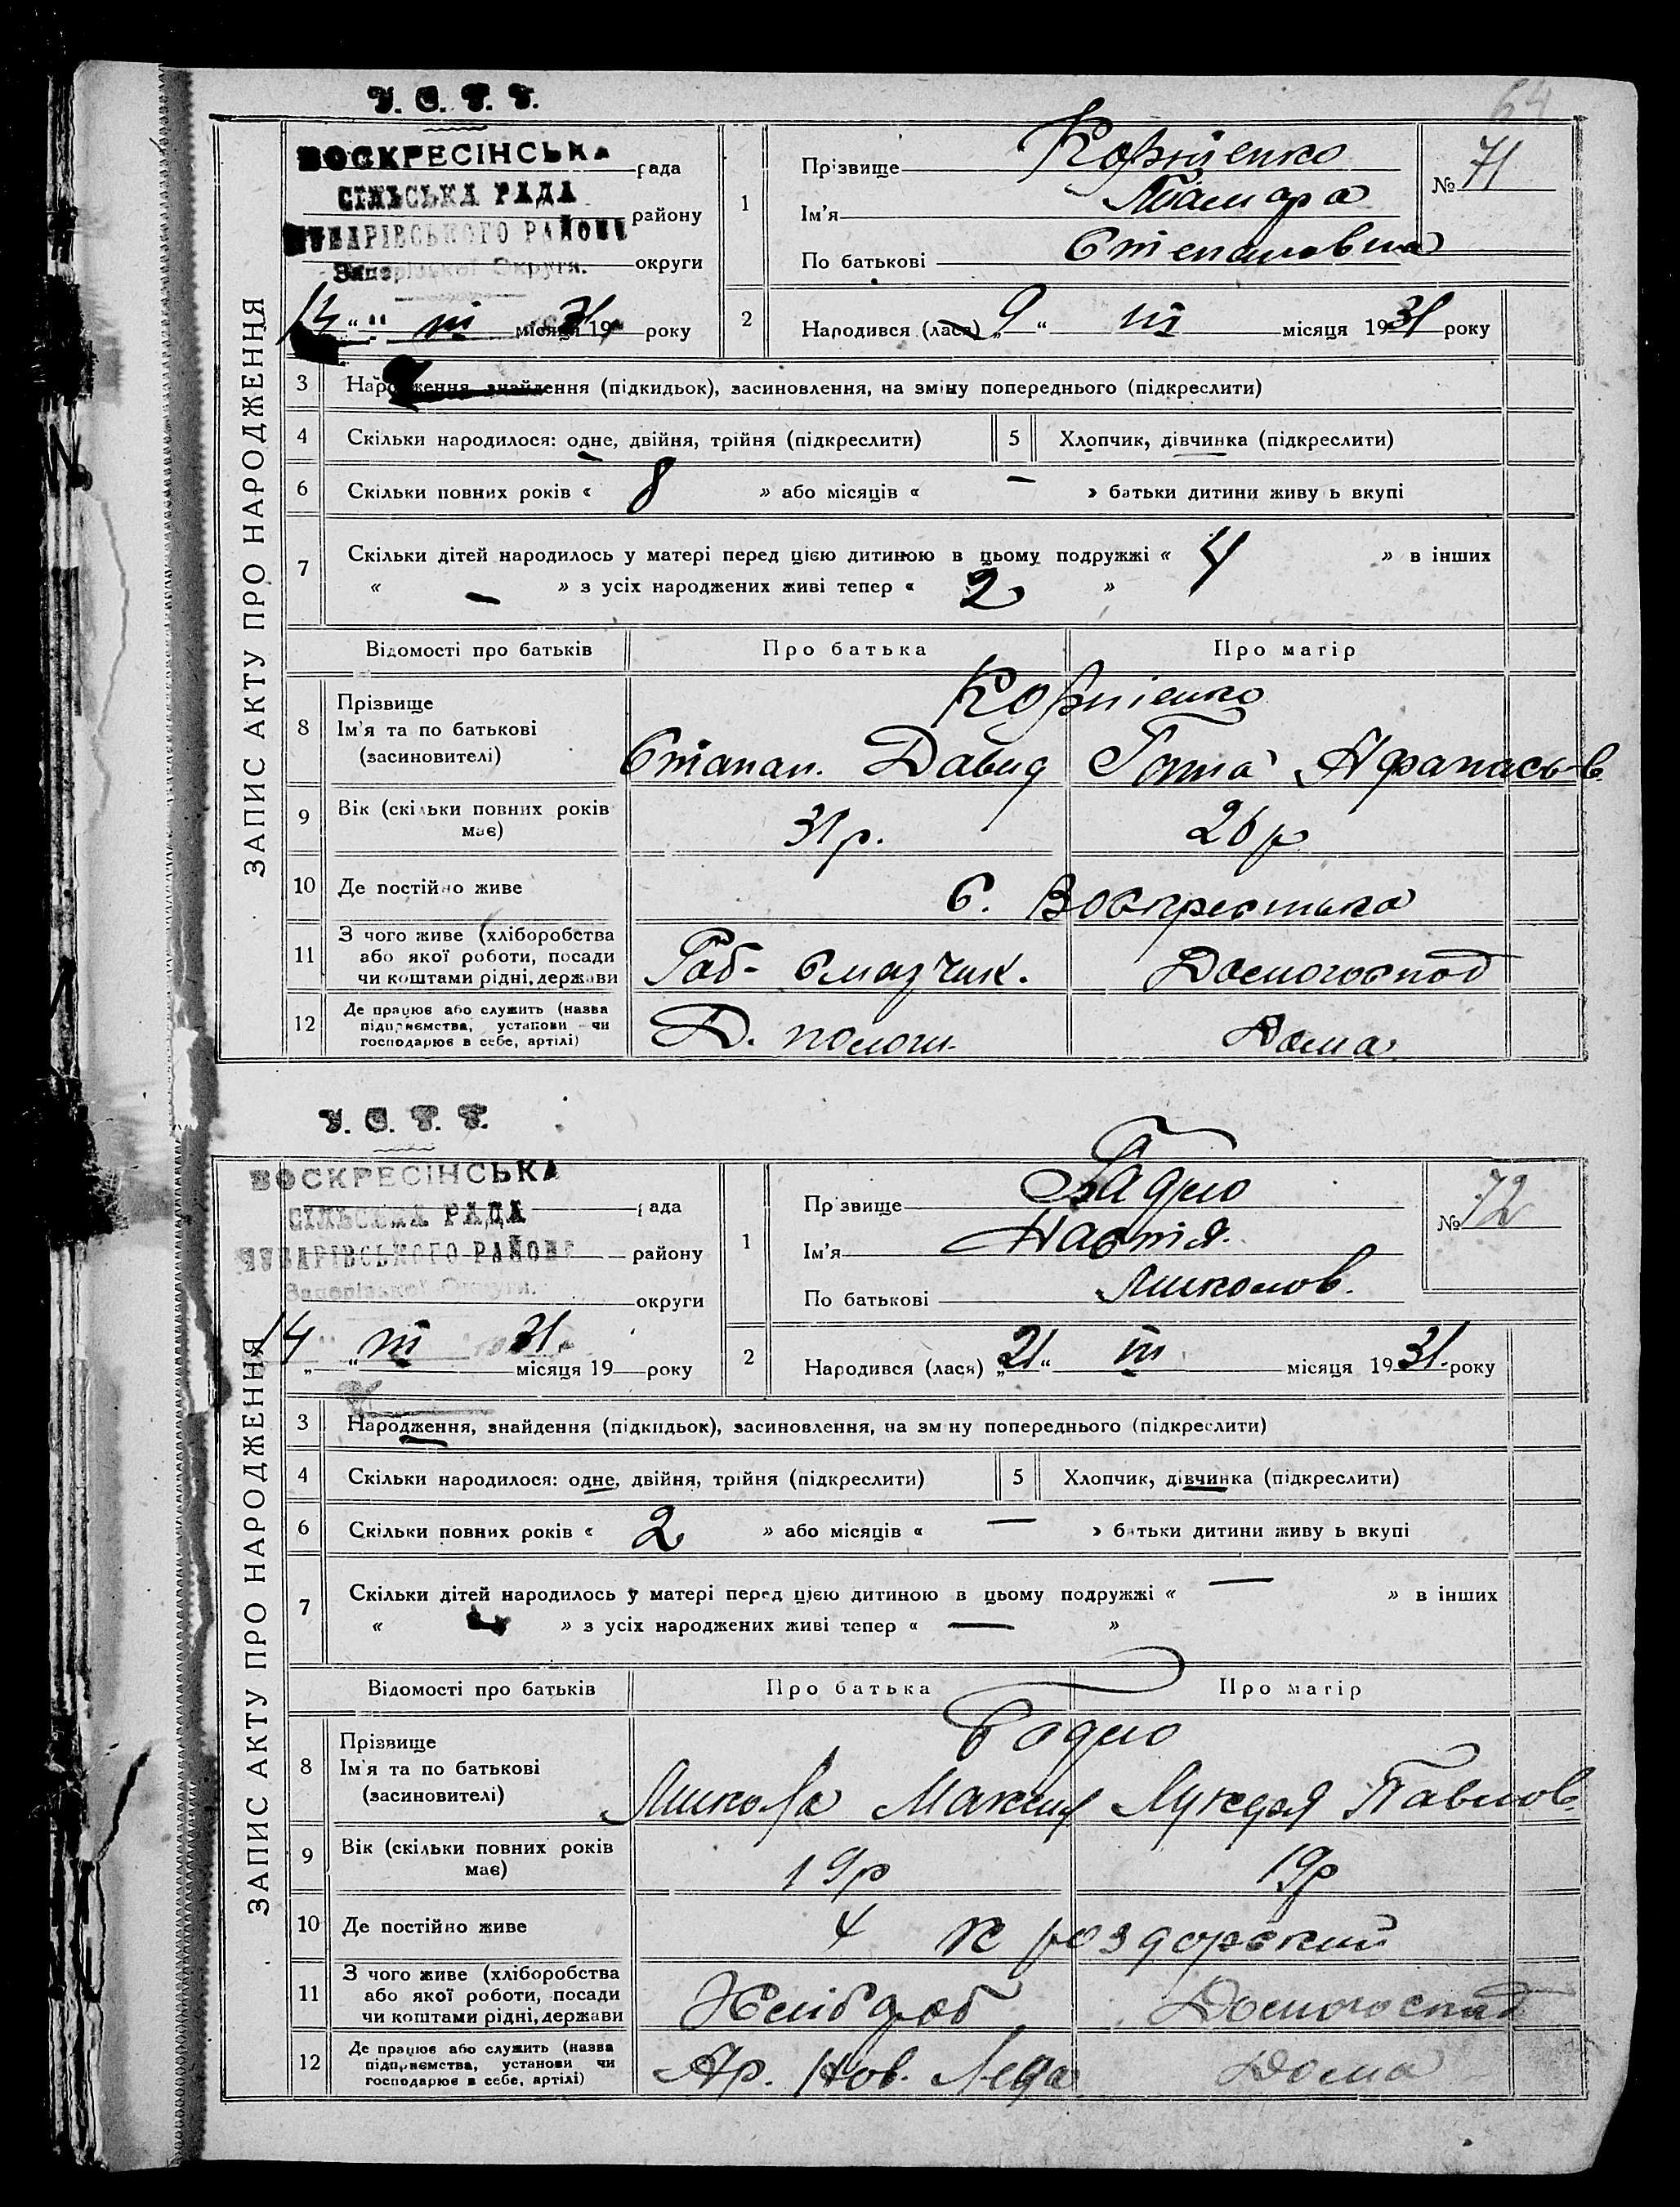 64
У. С. Р. Р.
ЗАПИС АКТУ ПРО НАРОДЖЕННЯ
ВОСКРЕСІНСЬКА рада
СІЛЬСЬКА РАДА району
ЧУБАРІВСЬКОГО РАЙОНУ
Запорізької Округи. округи
" ІІІ місяця 1931 року
1 Прізвище
Ім'я Тамара
По батькові Степановна
№ 71
2 Народився (лася) „9" ІІІ місяця 1931 року
3 Народження, знайдення (підкидьок), засиновлення, на зміну попереднього (підкреслити)
4 Скільки народилося: одне, двійня, трійня (підкреслити)
5 Хлопчик, дівчинка (підкреслити)
6 Скільки повних років « 8 » або місяців « — » батьки дитини живуть вкупі
7 Скільки дітей народилось у матері перед цією дитиною в цьому подружжі « 4 » в інших
« — » з усіх народжених живі тепер « 2 »
Відомості про батьків Про батька Про матір
8 Прізвище
Ім'я та по батькові Степан. Давид Афанасьев
(засновителі)
9 Вік (скільки повних років має) 31 р. 26 р
10 Де постійно живе С. Воскресенька
11 З чого живе (хліборобства або якої роботи, посади чи коштами рідні, держави Раб- смазчик. Домогоспод
12 Де працює або служить (назва підприємства, установи чи господарює в себе, артілі) Д. пологи. Дома
У. С. Р. Р.
ЗАПИС АКТУ ПРО НАРОДЖЕННЯ
ВОСКРЕСІНСЬКА
СІЛЬСЬКА РАДА рада
ЧУБАРІВСЬКОГО РАЙОНУ району
Запорізької Округи. округи
14 " ІІІ місяця 1931 року
1 Прізвище
Ім'я Настія
По батькові Миколов.
№ 72
2 Народився (лася) „21" ІІІ місяця 1931. року
3 Народження, знайдення (підкидьок), засиновлення, на зміну попереднього (підкреслити)
4 Скільки народилося: одне, двійня, трійня (підкреслити)
5 Хлопчик, дівчинка (підкреслити)
6 Скільки повних років « 2 » або місяців « — » батьки дитини живуть вкупі
7 Скільки дітей народилось у матері перед цією дитиною в цьому подружжі « — » в інших
« » з усіх народжених живі тепер « — »
Відомості про батьків Про батька Про матір
8 Прізвище
Ім'я та по батькові Микола Максим Лукерья Павлов.
(засиновителі)
9 Вік (скільки повних років має) 19 р 19 р
10 Де постійно живе
11 З чого живе (хліборобства або якої роботи, посади чи коштами рідні, держави Хлібороб Домогоспод
12 Де працює або служить (назва підприємства, установи чи господарює в себе, артілі) Ар. Нов. Дома